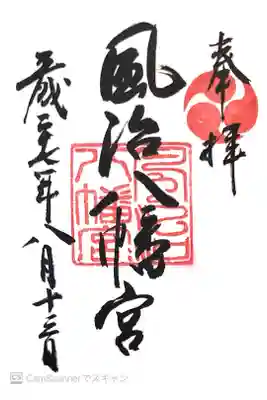 奉拝
風治八幡宮
八幡宮
平成二七年八月十三日
CS CamScannerでスキャン